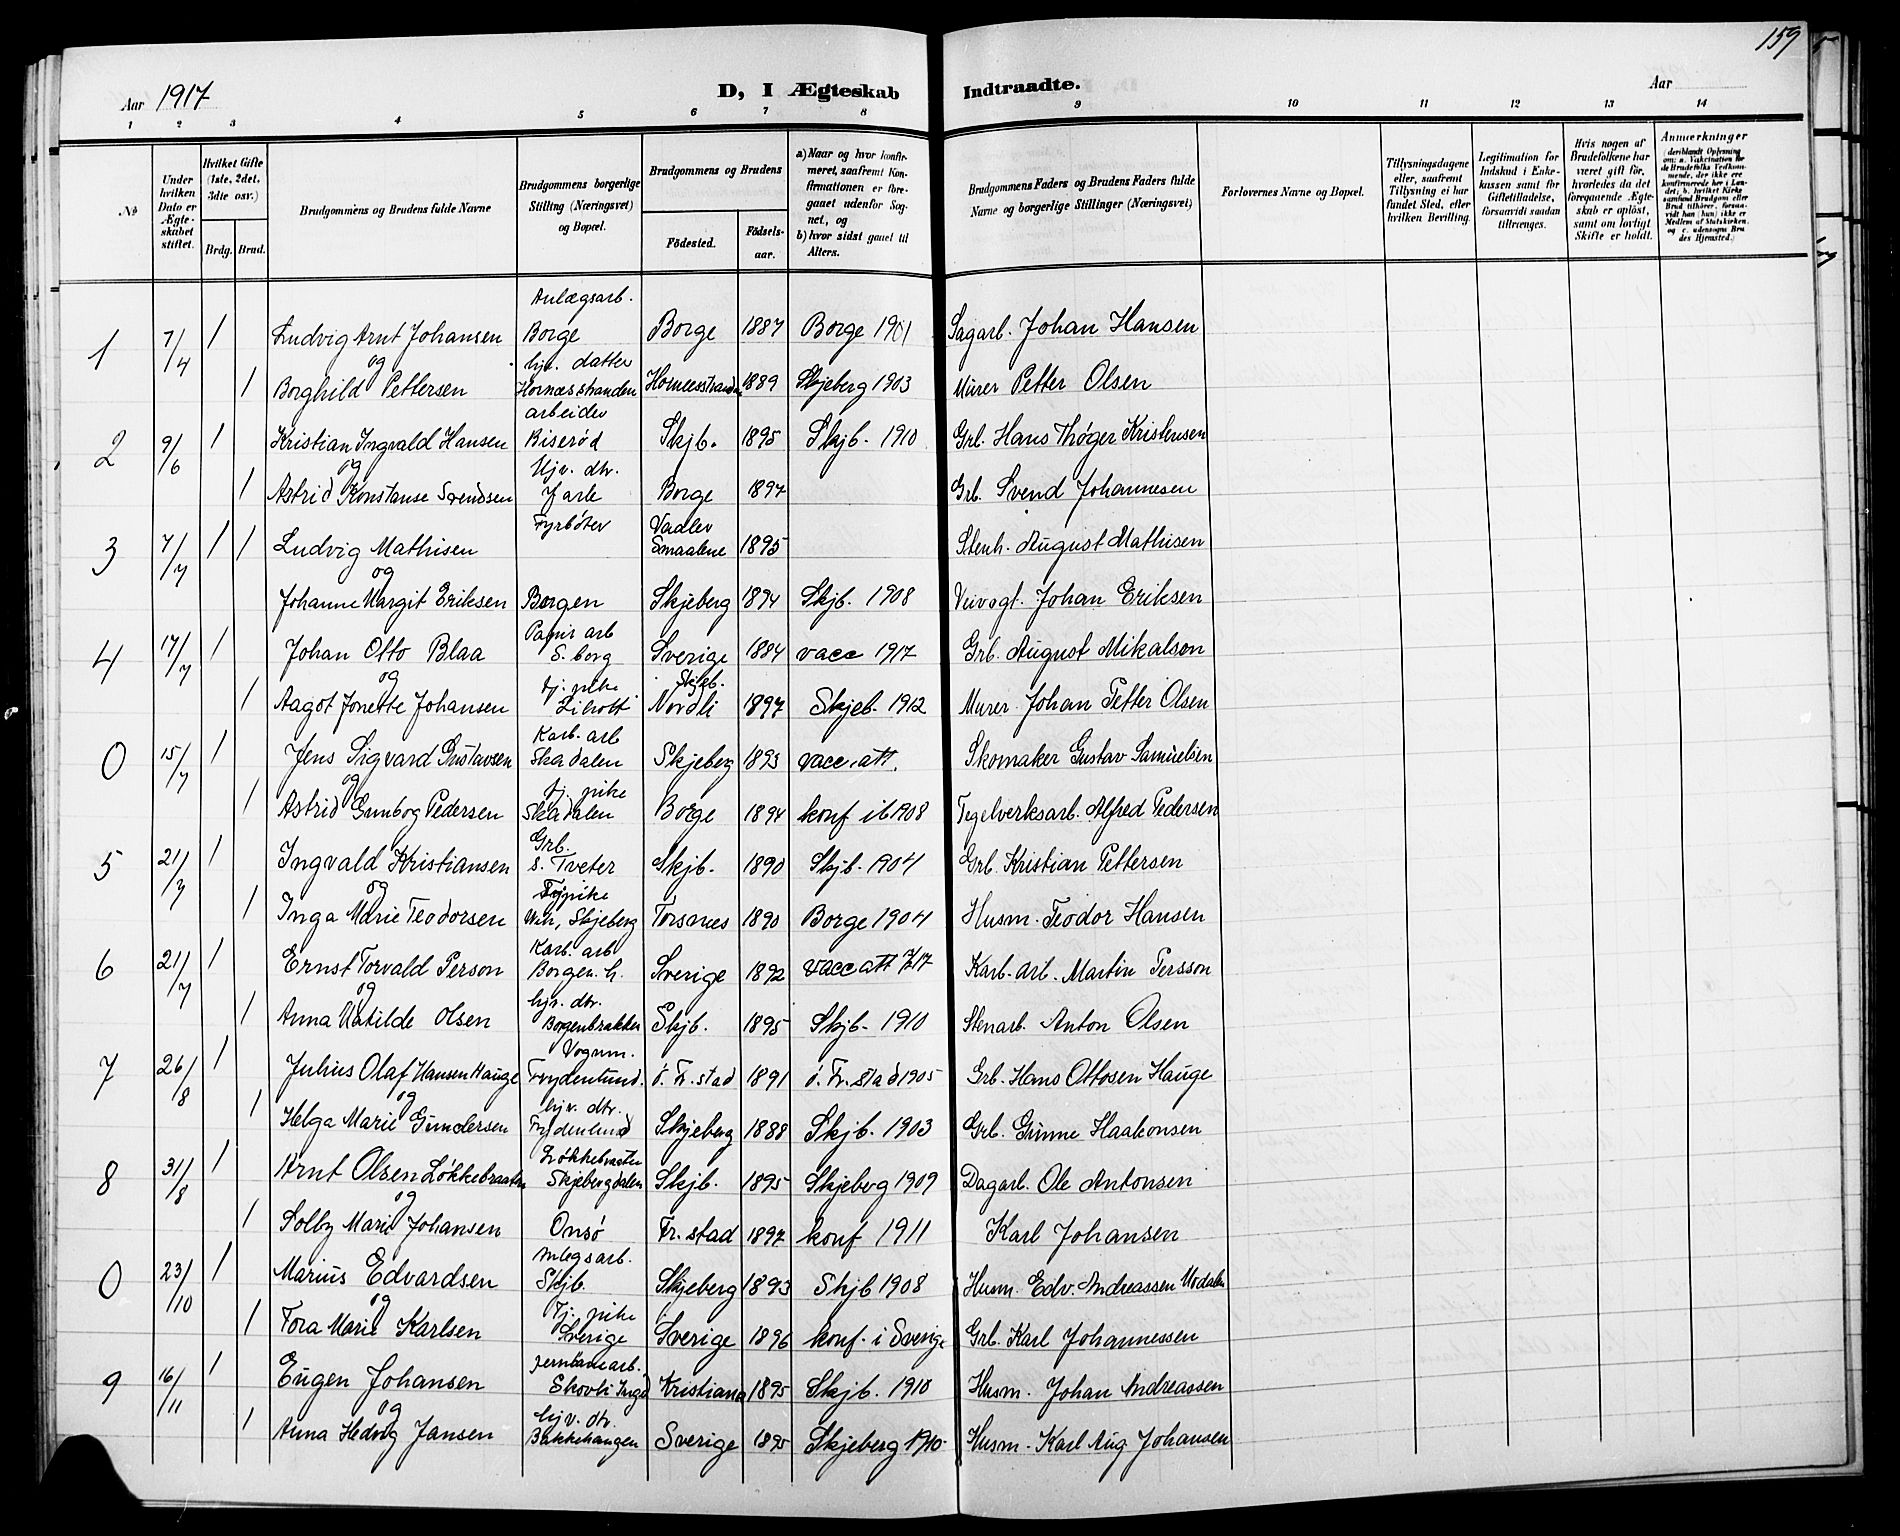 159
Aar 1917 D, I Ægteskab Indtraadte. Aar
1 2 3 4 5 6 7 8 9 10 11 12 13 14
No
Under hvilken Dato er Ægteskabet stiftet.
Hvilket Gifte (1ste, 2det, 3die osv.)
Brdg. Brud.
Brudgommens og Brudens fulde Navne
Brudgommens borgerlige Stilling (Næringsvei) og Bopæl.
Brudgommens og Brudens
Födested. Födsels-aar.
a) Naar og hvor konfirmeret, saafremt Konfirmationen er foregaaet udenfor Sognet, og
b) hvor sidst gaaet til Alters.
Brudgommens Faders og Brudens Faders fulde Navne og borgerlige Stillinger (Næringsvei)
Forlovernes Navne og Bopæl.
Tillysningsdagene eller, saafremt Tillysning ei har fundet Sted, efter hvilken Bevilling.
Legitimation for Indskud i Enkekassen samt for Giftetilladelse, forsaavidt saadan tiltrænges.
Hvis nogen af Brudefolkene har været gift før, hvorledes da det foregaaende Ægteskab er opløst, samt om lovligt Skifte er holdt.
Anmærkninger
(deriblandt Oplysning om: a. Vakcination for de Brudefolks Vedkommende, der ikke ere konfirmerede her i Landet; b. hvilket Kirkesamfund Brudgom eller Brud tilhører, forsaavidt han (hun) ikke er Medlem af Statskirken, og c. udensogns Brudes Hjemsted.)
Anlægsarb.
1 7/4 1 Ludvig Arnt Johansen Borge Borge 1887 Borge 1901 Sagarb. Johan Hansen
og hjv. datter
1 Borghild Pettersen Hornæsstranden Hornesstranden 1889 Skjeberg 1903 Murer Petter Olsen
arbeider
2 9/6 1 Kristian Ingvald Hansen Biserød Skjb. 1895 Skjb. 1910 Grb. Hans Thøger Kristensen
og Hjv. dtr.
1 Astrid Konstanse Svendsen Borge 1897 Grb. Svend Johannesen
Fyrbøter Vadlev
3 7/7 1 1 Ludvig Mathisen Smaalene 1895 Stenh. August Mathisen
og
Johanne Margit Eriksen Borgen Skjeberg 1894 Skjb. 1908 Veivogt. Johan Eriksen
Papir arb
4 17/7 1 Johan Otto Blaa S. borg Sverige 1884 vacc 1917 Grb. August Mikalson
og tj. pike Skjeb.
1 Aagot Jonette Johansen Nordli 1897 Skjeb. 1912 Murer Johan Petter Olsen
Karb. arb
0 15/7 1 Jens Sigvard Gustavsen Skadalen Skjeberg 1893 vacc. att. Skomaker Gustav Samuelsen
og tj. pike
1 Astrid Gunbog Pedersen Skadalen Borge 1894 konf i b 1908 Tegelverksarb. Alfred Pedersen
Grb.
5 21/7 1 Ingvald Kristiansen s. Tveter Skjb. 1890 Skjb. 1904 Grb. Kristian Pettersen
og Tj. pike
1 Inga Marie Teodorsen Skjeberg Torsnes 1890 Borge 1904 Husm. Teodor Hansen
Karb. arb
6 21/7 1 Ernst Torvald Person Borgen. h. Sverige 1892 vacc att 7/17 Karb. arb. Martin Persson
og hjv. dtr.
1 Anna Matilde Olsen Borgenbrakken Skjb. 1895 Skjb. 1910 Stenarb. Anton Olsen
Vognm.
7 26/8 1 Julius Olaf Hansen Hauge Frydenlund. ö. Fr. stad 1891 ö. Fr. stad 1905 Grb. Hans Ottosen Hauge
og hjv. dtr.
1 Helga Marie Gundersen Frydenlund Skjeberg 1888 Skjb. 1903 Grb. Gunne Haakonsen
8 31/8 1 Arnt Olsen Løkkebraaten Skjebergdalen Skjb. 1895 Skjeberg 1909 Dagarb. Ole Antonsen
og
1 Solby Marie Johansen Onsø Fr. stad 1897 konf 1911 Karl Johansen
Anlegsarb.
0 23/10 1 Marius Edvardsen Skjb. Skjeberg 1893 Skjb 1908 Husm. Edv. Andreassen
og Tj. pike
1 Tora Marie Karlsen Sverige Sverige 1896 konf. i Sverige Grb. Karl Johannessen
jernbanearb.
9 16/11 1 Eugen Johansen Skovli Kristiania 1895 Skjb. 1910 Husm. Johan Andreassen
og hjv. dtr.
1 Anna Hedvig Jansen Bakkehaugen Sverige 1895 Skjeberg 1910 Husm. Karl Aug. Johansen